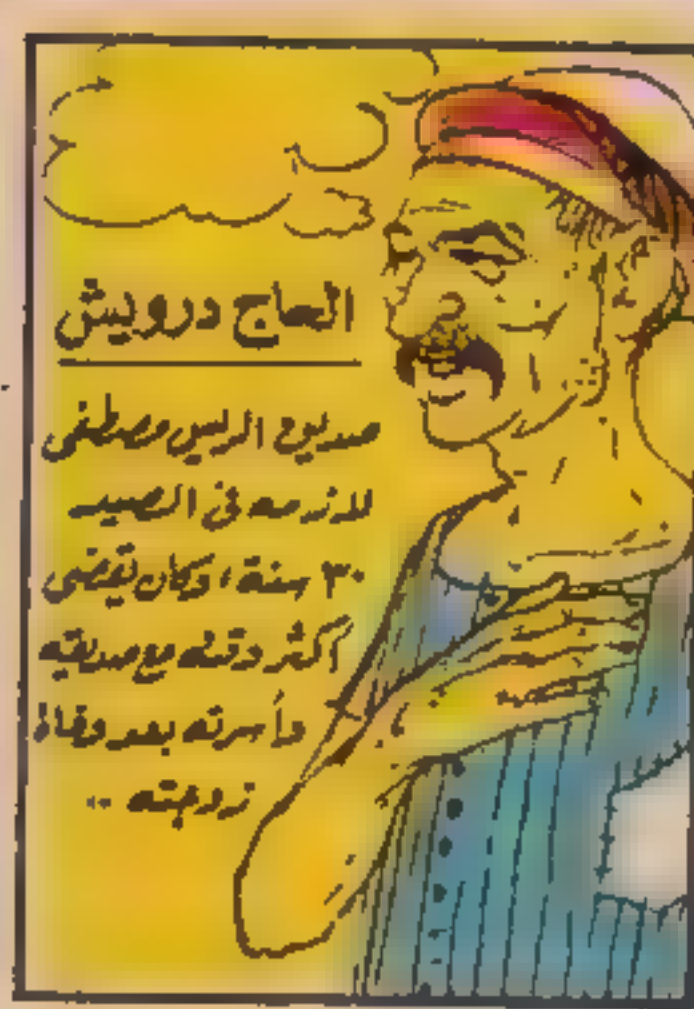 الحاج درويش
صديق الريس مصطفى
لازمه فى الصيد
٣٠ سنة، وكان يقضى
أكثر وقته مع صديقه
وأسرته بعد وفاة
زوجته ..